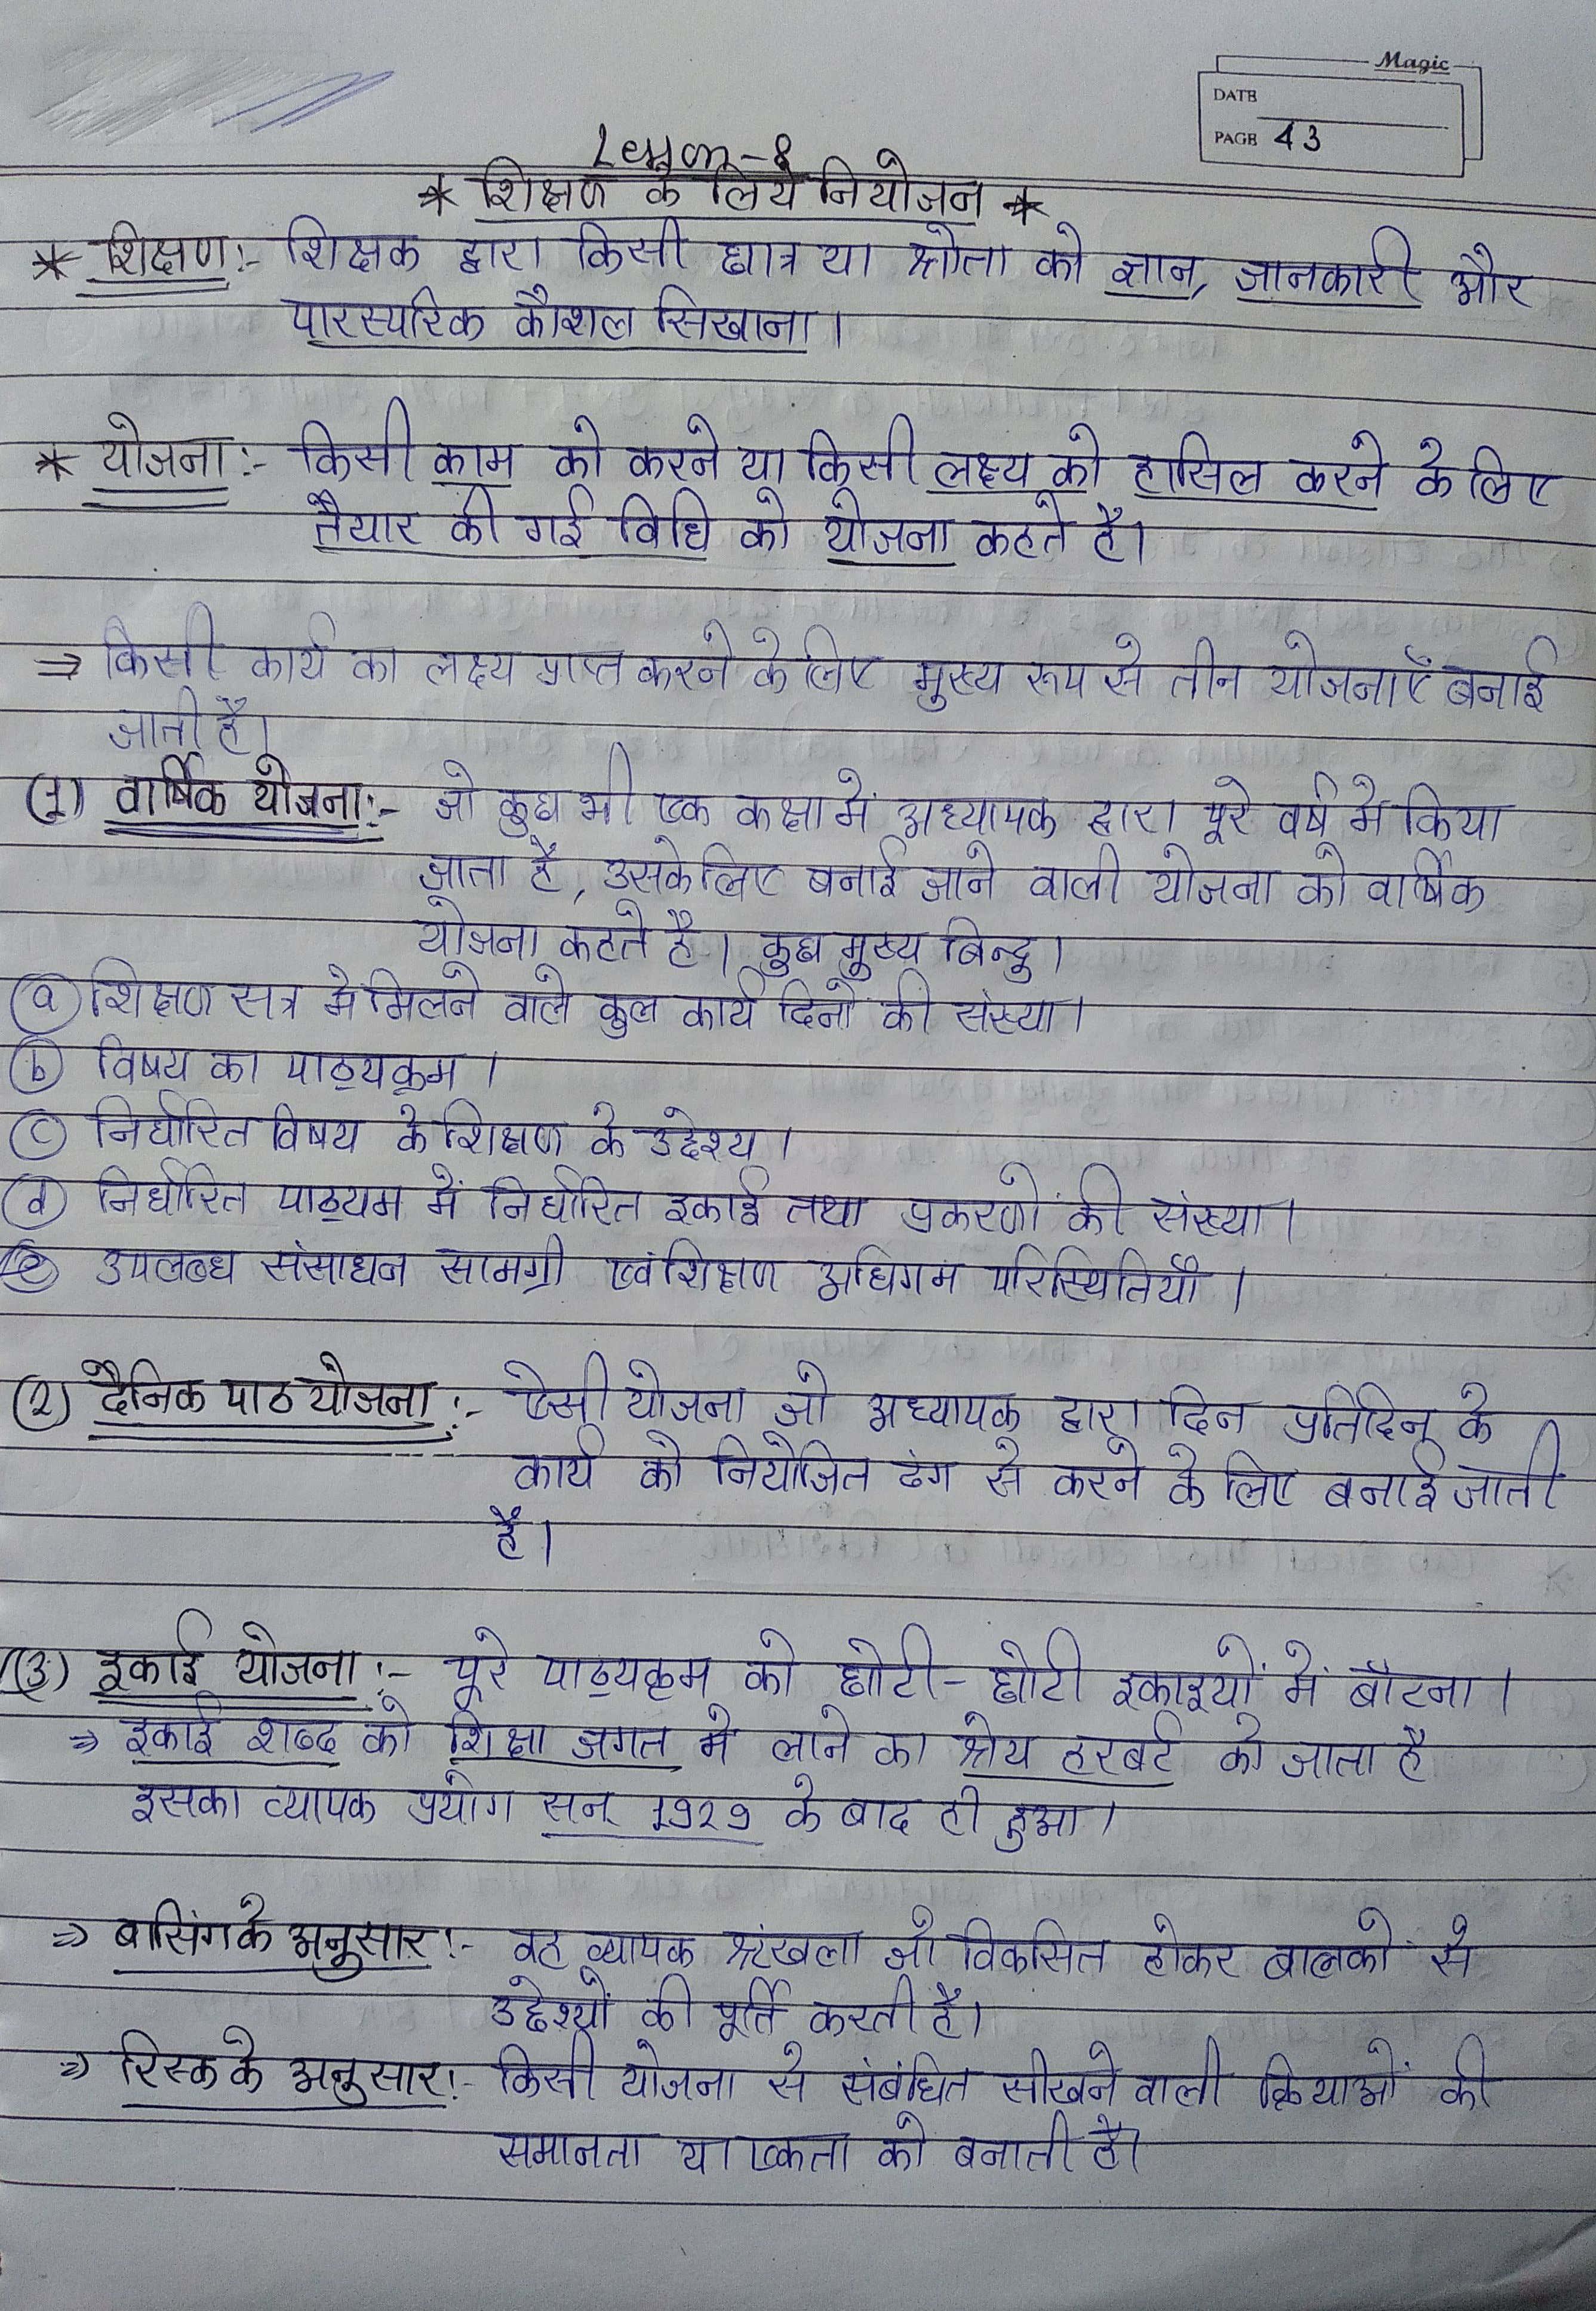 Magic
DATE
PAGE 43
Lesson-8
* शिक्षण के लिये नियोजन *
* शिक्षण:- शिक्षक द्वारा किसी छात्र या श्रोता को ज्ञान, जानकारी और
पारस्परिक कौशल सिखाना।
* योजना:- किसी काम को करने या किसी लक्ष्य को हासिल करने के लिए
तैयार की गई विधि को योजना कहते है।
⇒ किसी कार्य का लक्ष्य प्राप्त करने के लिए मुख्य रूप से तीन योजनाएँ बनाई
जाती है।
(1) वार्षिक योजना:- जो कुछ भी एक कक्षा में अध्यापक द्वारा पूरे वर्ष मे किया
जाता है, उसके लिए बनाई जाने वाली योजना को वार्षिक
योजना कहते है। कुछ मुख्य बिन्दु।
(a) शिक्षण सत्र मे मिलने वाले कुल कार्य दिनो की संख्या।
(b) विषय का पाठ्यक्रम।
(c) निर्धारित विषय के शिक्षण के उद्देश्य।
(d) निर्धारित पाठ्यम में निर्धारित इकाई तथा प्रकरणों की संख्या।
(e) उपलब्ध संसाधन सामग्री एवं शिक्षण अधिगम परिस्थितियाँ।
(2) दैनिक पाठ योजना:- ऐसी योजना जो अध्यापक द्वारा दिन प्रतिदिन के
कार्य को नियोजित ढंग से करने के लिए बनाई जाती
है।
(3) इकाई योजना:- पूरे पाठ्यक्रम को छोटी-छोटी इकाइयों में बाँटना।
⇒ इकाई शब्द को शिक्षा जगत मे लाने का श्रेय हरबर्ट को जाता है
इसका व्यापक प्रयोग सन् 1929 के बाद ही हुआ।
⇒ बासिंग के अनुसार:- वह व्यापक श्रंखला जो विकसित होकर बालको से
उद्देश्यों की पूर्ति करती है।
⇒ रिस्क के अनुसार:- किसी योजना से संबंधित सीखने वाली क्रियाओं की
समानता या एकता को बनाती है।